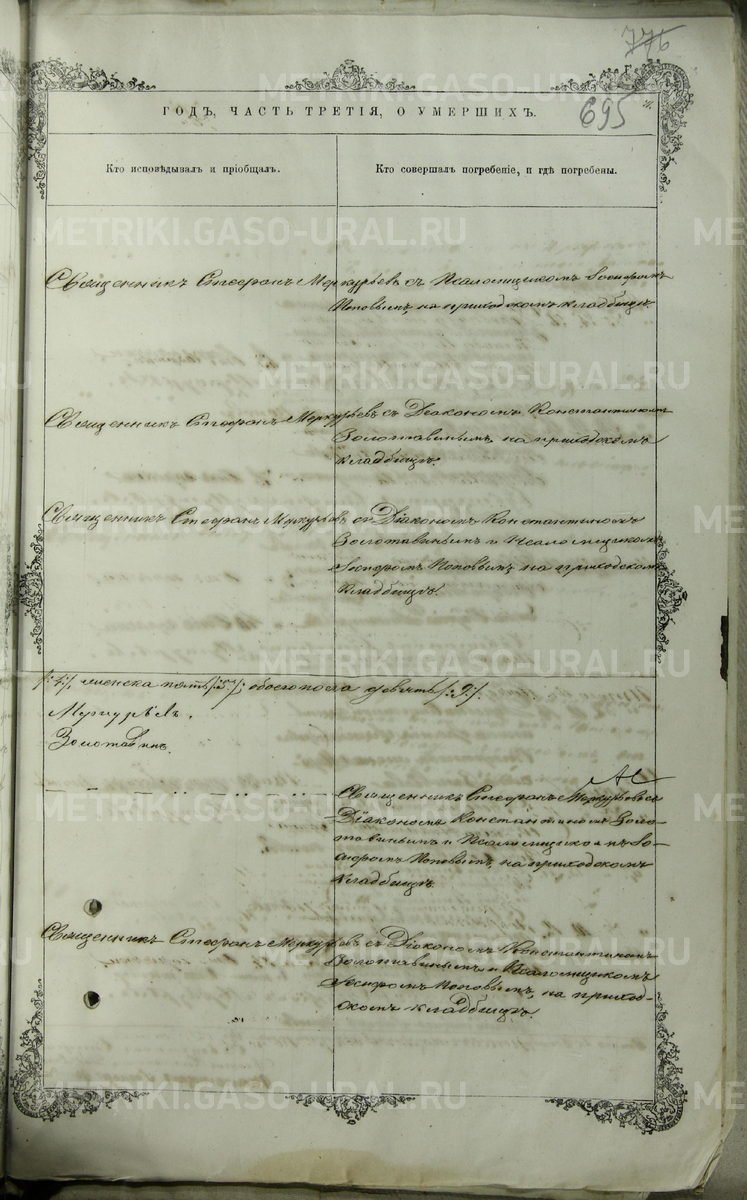 776
695
ГОДЪ, ЧАСТЬ ТРЕТІЯ, О УМЕРШИХЪ.
Кто исповѣдывалъ и пріобщалъ.
Кто совершалъ погребеніе, и гдѣ погребены.
METRIKI.GASO-URAL.RU
Священникъ Стефанъ Меркурьевъ съ Псаломщикомъ Іосифомъ
Поповымъ, на приходскомъ кладбищѣ.
Священникъ Стефанъ Меркурьевъ съ Діакономъ Константиномъ
Золотавинымъ на приходскомъ
кладбищѣ.
Священникъ Стефанъ Меркурьевъ съ Діакономъ Константиномъ
Золотавинымъ и Псаломщикомъ
Іосифомъ Поповымъ на приходскомъ
кладбищѣ.
/:4:/, женска пять /:5:/, обоего пола девять /:9:/.
Меркурьевъ.
Золотавинъ.
Священникъ Стефанъ Меркурьевъ съ
Діакономъ Константиномъ Золо-
тавинымъ и Псаломщикомъ Іо-
сифомъ Поповымъ, на приходскомъ
кладбищѣ.
Священникъ Стефанъ Меркурьевъ съ Діакономъ Константиномъ
Золотавинымъ и Псаломщикомъ
Іосифомъ Поповымъ, на приход-
скомъ кладбищѣ.